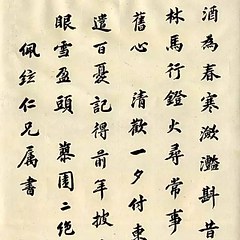 酒為春寒潋灩斟昔
林馬行鐙火尋常事
舊心　清歡一夕付東
遣百憂記得前年披
眼雪盈頭　藜園二絕
佩紝仁兄屬書